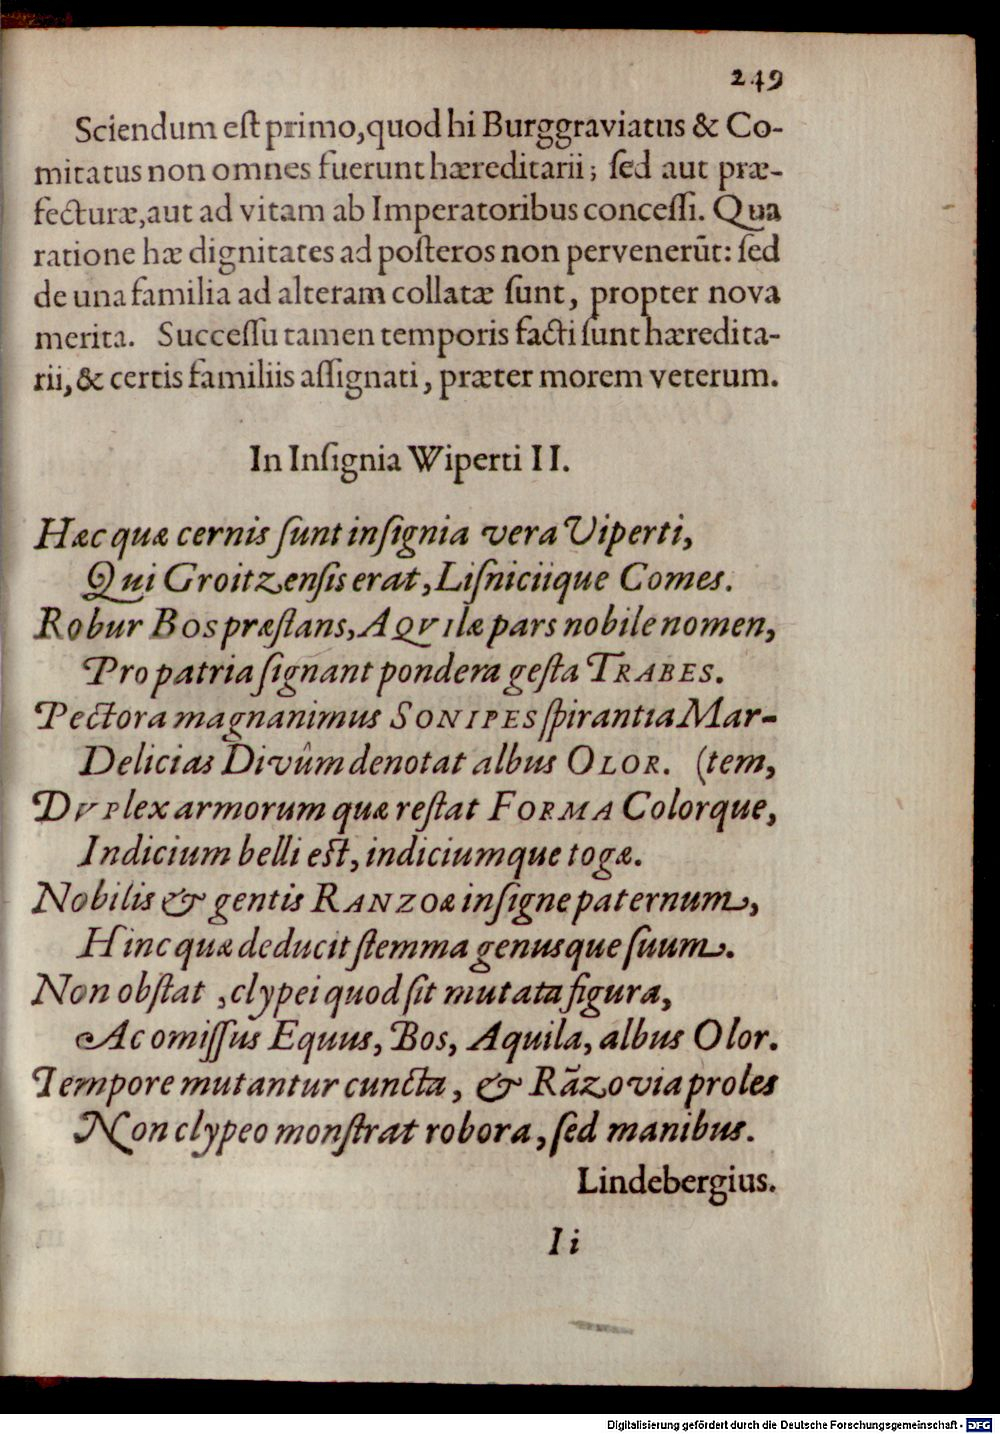 249
Sciendum eſt primo, quod hi Burggraviatus & Co-
mitatus non omnes fuerunt hæreditarii; ſed aut præ-
fecturæ, aut ad vitam ab Imperatoribus conceſſi. Qua
ratione hæ dignitates ad poſteros non pervenerũt: ſed
de una familia ad alteram collatæ ſunt, propter nova
merita. Succeſſu tamen temporis facti ſunt hæredita-
rii, & certis familiis aſſignati, præter morem veterum.
In Inſignia Wiperti II.
Hæc quæ cernis ſunt inſignia vera Viperti,
Qui Groitzenſis erat, Liſniciique Comes.
Robur BOS præſtans, AQVILæ pars nobile nomen,
Pro patria ſignant pondera geſta TRABES.
Pectora magnanimus SONIPES ſpirantia Mar-
Delicias Divûm denotat albus OLOR. (tem,
DVPlex armorum quæ reſtat FORMA Colorque,
Indicium belli eſt, indiciumque togæ.
Nobilis & gentis RANZOæ inſigne paternum,
Hinc quæ deducit ſtemma genusque ſuum.
Non obſtat, clypei quod ſit mutata figura,
Ac omiſſus Equus, Bos, Aquila, albus Olor.
Tempore mutantur cuncta, & Rãzovia proles
Non clypeo monſtrat robora, ſed manibus.
Lindebergius.
Ii
Digitalisierung gefördert durch die Deutsche Forschungsgemeinschaft - DFG